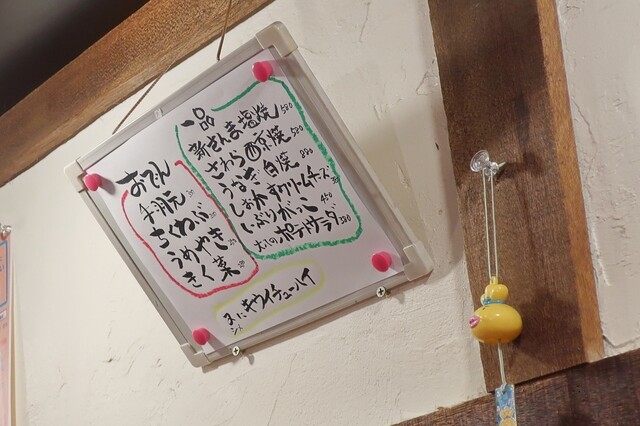 一品
新さんま塩焼 580
さわら西京焼 580
うなぎ白焼
しおれすクリームチーズ
いぶりがっこ 450
大人のポテトサラダ 380
おでん
ちくわぶ
うめやき
きく菜
キウイチューハイ